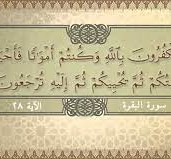 كفرون بالله وكنتم أموتا فأحي
كم ثم يحييكم ثم إليه ترجعون
سورة البقرة
الآية ٢٨